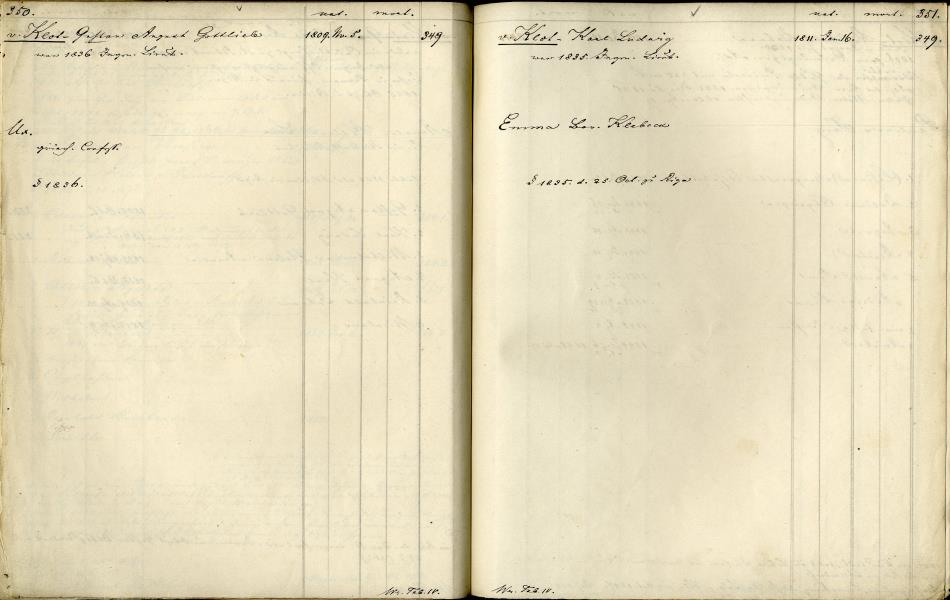 350.
nat. mort.
v. Klot. Gustav August Gottlieb 1809. Nv. 5. 349
war 1836 Ingen. Lieut.
Ux.
griech. Confess.
§ 1836.
Wr. Tab. IV.
351.
nat. mort.
v. Klot. Karl Ludwig 1811. Jan 16. 349.
war 1835. Ingen. Lieut.
Emma Bar. Klebeck
§ 1835. d. 25. Oct. zu Riga
Wr. Tab. IV.